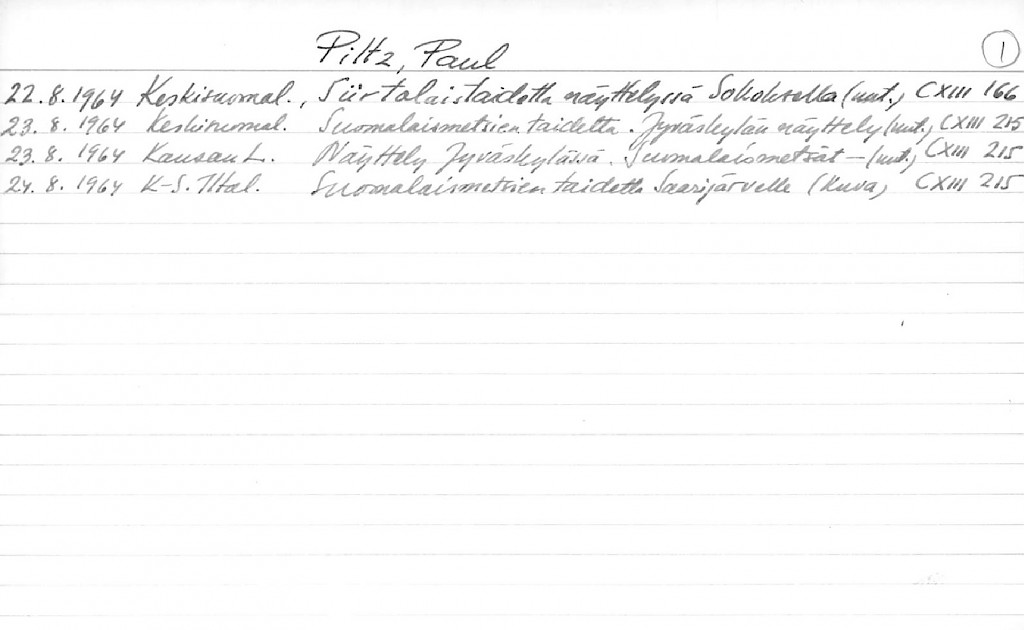 Piltz, Paul 1
22.8.1964 Keskisuomal., Siirtolaistaidetta näyttelyssä Sokoksella (uut.) CXIII 166
23.8.1964 Keskisuomal. Suomalaismetsien taidetta. Jyväskylän näyttely (uut.) CXIII 215
23.8.1964 Kansan L. Näyttely Jyväskylässä. Suomalaismetsät – (uut.) CXIII 215
24.8.1964 K-S. Iltal. Suomalaismetsien taidetta Saarijärvelle (kuva) CXIII 215